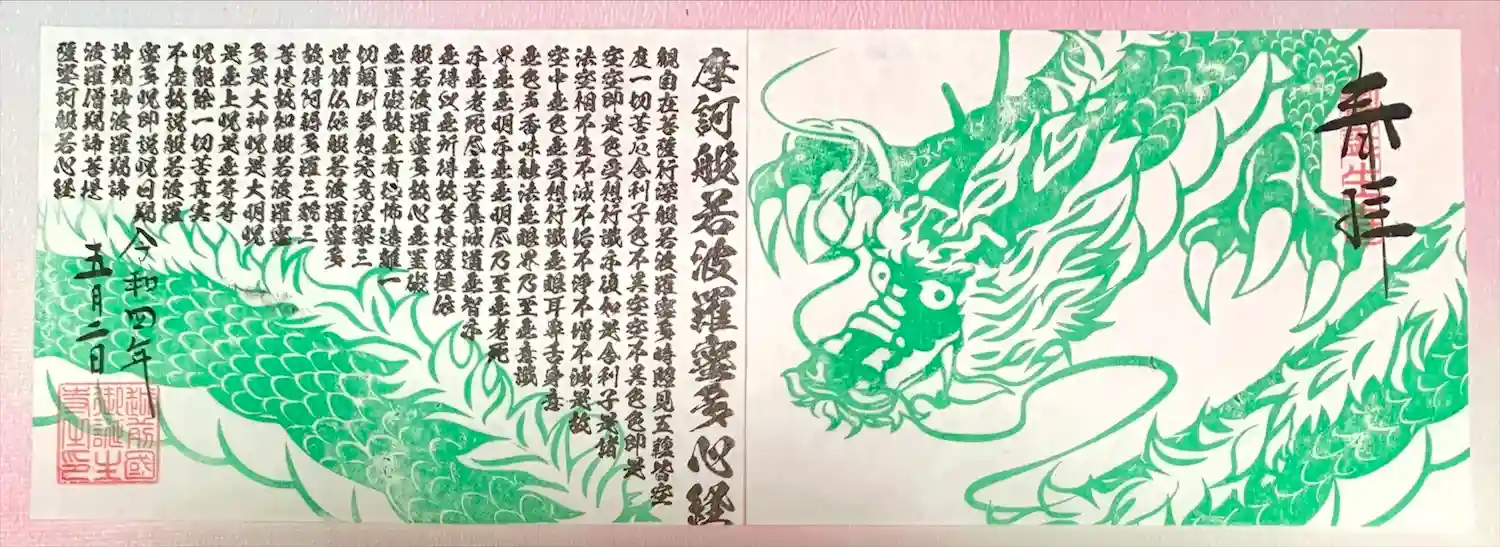 奉拝
摩訶般若波羅蜜多心経
観自在菩薩行深般若波羅蜜多時照見五蘊皆空
度一切苦厄舎利子色不異空空不異色色即是
空空即是色受想行識亦復如是舎利子是諸
法空相不生不滅不垢不浄不増不減是故
空中無色無受想行識無眼耳鼻舌身意
無色声香味触法無眼界乃至無意識
界無無明亦無無明尽乃至無老死
亦無老死尽無苦集滅道無智亦
無得以無所得故菩提薩埵依
般若波羅蜜多故心無罣礙
無罣礙故無有恐怖遠離一
切顛倒夢想究竟涅槃三
世諸仏依般若波羅蜜多
故得阿耨多羅三藐三
菩提故知般若波羅蜜
多是大神呪是大明呪
是無上呪是無等等
呪能除一切苦真実
不虚故説般若波羅
蜜多呪即説呪曰羯
諦羯諦波羅羯諦
波羅僧羯諦菩提
薩婆訶般若心経
令和四年
五月二日
越前國
御誕生